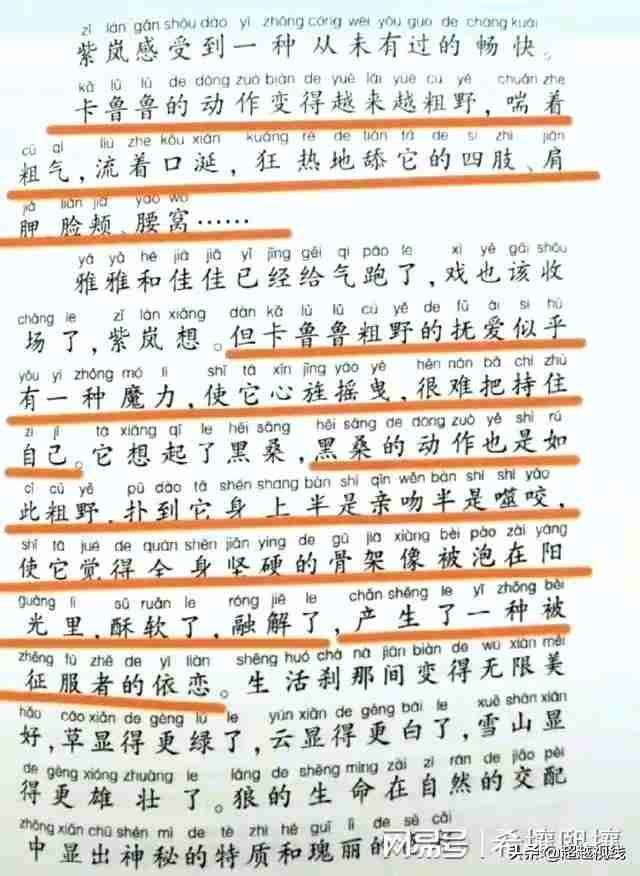 zǐ lán gǎn shòu dào yì zhǒng cóng wèi yǒu guo de chàng kuài
紫岚感受到一种从未有过的畅快。
kǎ lǔ lǔ de dòng zuò biàn de yuè lái yuè cū yě chuǎn zhe
卡鲁鲁的动作变得越来越粗野，喘着
cū qì liú zhe kǒu xián kuáng rè de tiǎn tā de sì zhī jiān
粗气，流着口涎，狂热地舔它的四肢、肩
jiǎ liǎn jiá yāo wō
胛、脸颊、腰窝……
yǎ yǎ hé jiā jiā yǐ jīng gěi qì pǎo le xì yě gāi shōu
雅雅和佳佳已经给气跑了，戏也该收
chǎng le zǐ lán xiǎng dàn kǎ lǔ lǔ cū yě de fǔ ài sì hū
场了，紫岚想。但卡鲁鲁粗野的抚爱似乎
yǒu yì zhǒng mó lì shǐ tā xīn jīng yáo yè hěn nán bǎ chí zhù
有一种魔力，使它心旌摇曳，很难把持住
zì jǐ tā xiǎng qǐ le hēi sāng hēi sāng de dòng zuò yě shì rú
自己。它想起了黑桑，黑桑的动作也是如
cǐ cū yě pū dào tā shēn shang bàn shì qīn wěn bàn shì shì yǎo
此粗野，扑到它身上半是亲吻半是噬咬，
shǐ tā jué de quán shēn jiān yìng de gǔ jià xiàng bèi pào zài yáng
使它觉得全身坚硬的骨架像被泡在阳
guāng li sū ruǎn le róng jiě le chǎn shēng le yì zhǒng bèi
光里，酥软了，融解了，产生了一种被
zhēng fú zhě de yī liàn shēng huó chà nà jiān biàn de wú xiàn měi
征服者的依恋。生活刹那间变得无限美
hǎo cǎo xiǎn de gèng lǜ le yún xiǎn de gèng bái le xuě shān xiǎn
好，草显得更绿了，云显得更白了，雪山显
de gèng xióng zhuàng le láng de shēng mìng zài zì rán de jiāo pèi
得更雄壮了。狼的生命在自然的交配
zhōng xiǎn chū shén mì de tè zhì hé guī lì de sè cǎi
中显出神秘的特质和瑰丽的
网易号 | 希壤熙壤
头条@超越视线